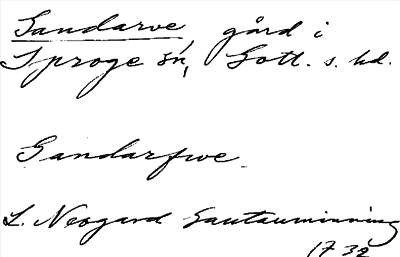 Gandarve, gård i
Sproge sn, Gotl. s. hd.
Gandarfwe
L. Neogard Gautauminning
1732